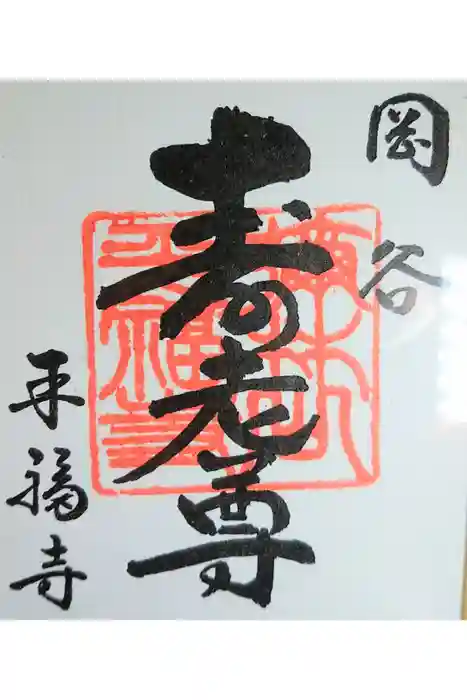 岡谷
寿老尊
平福寺